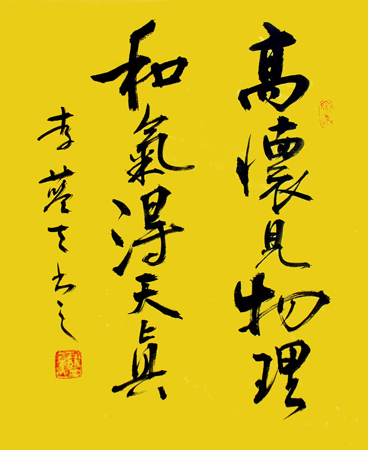 高懷見物理
和氣得天真
李蓝天书之